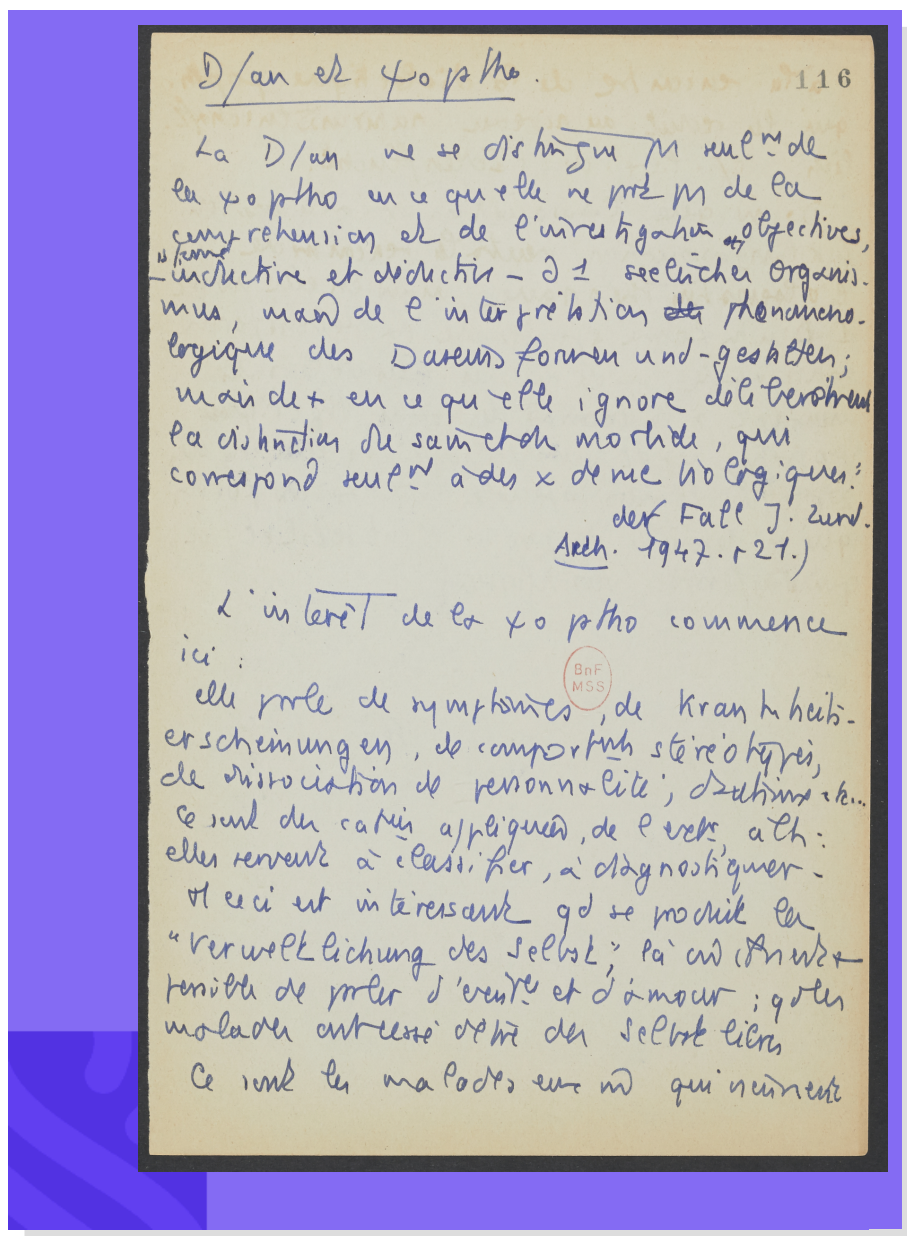 D/an et ψoptho.
116
La D/an ne se distingue pas seulnt de
la ψoptho en ce qu'elle ne part pas de la
compréhension et de l'investigation objectives,
– inductive et déductive – d 1 seelischen Organis-
mus, mais de l'interprétation phénoméno-
logique des Daseinsformen und -gestalten ;
mais de + en ce qu'elle ignore délibérément
la distinction du sain et du morbide, qui
correspond seulnt à des x de me biologiques."
der Fall J. Zund.
Arch. 1947. 21.)
L'intérêt de la ψoptho commence
ici :
elle parle de symptômes, de Krankheits-
erscheinungen, de comportnts stéréotypés,
de dissociation de personnalité ; d'autisme etc...
Ce sont des appliquées, de l'extr, :
elles servent à classifier, à diagnostiquer.
Or ceci est intéressant qd se produit la
"Verweltlichung des Selbst", là où +
possible de parler d' et d'amour ; qd les
malades ont cessé d'être des Selbst libres
Ce sont les malades eux m qui
BnF
MSS